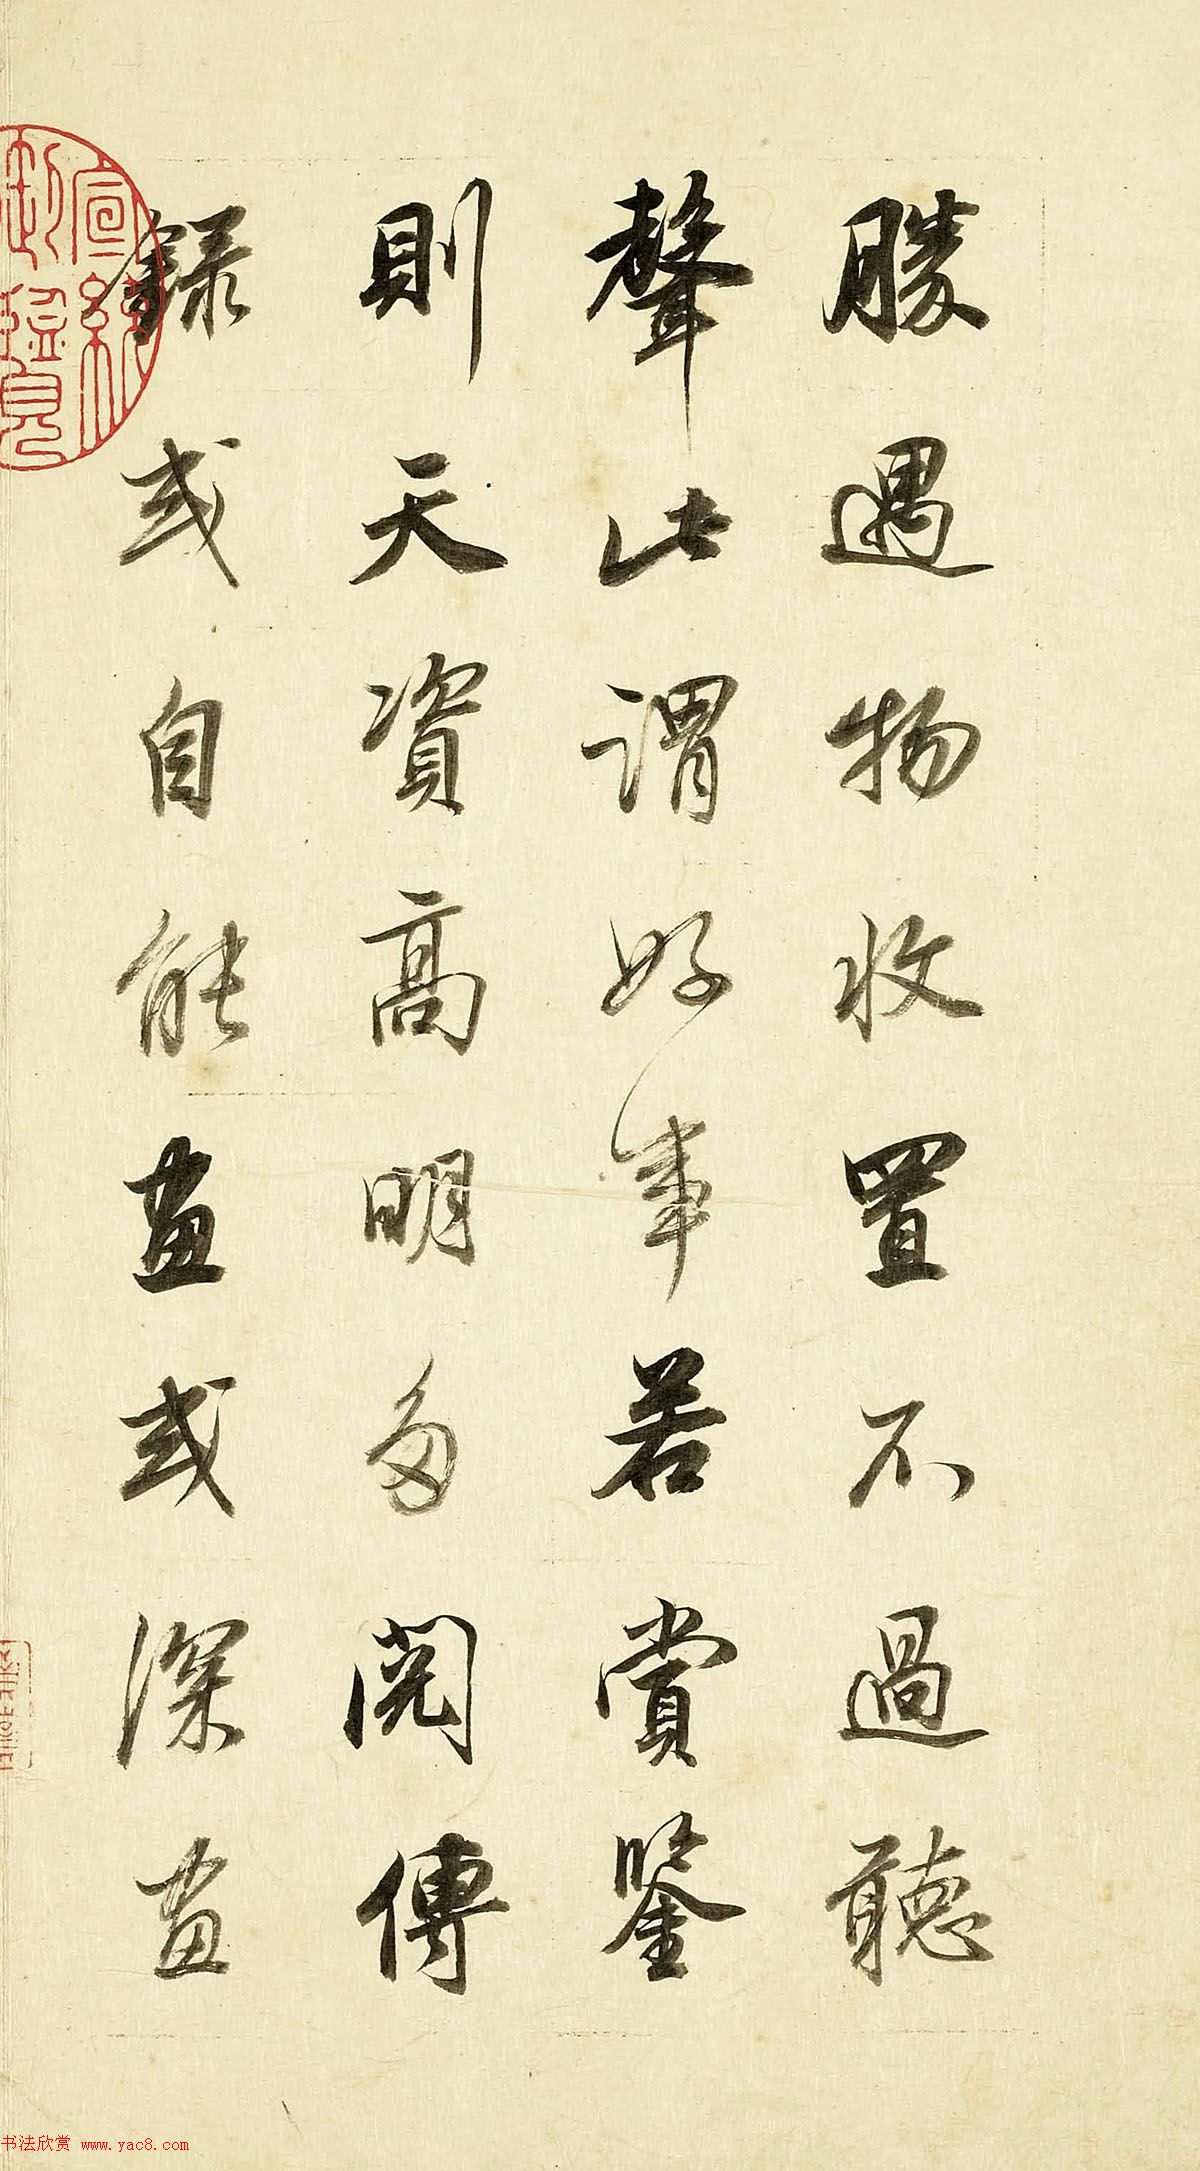 勝遇物收置不過聽
聲此謂好事若賞鑒
則天資高明多閱傳
錄或自能畫或深畫
宣統御覽鑑
书法欣赏 www.yac8.com